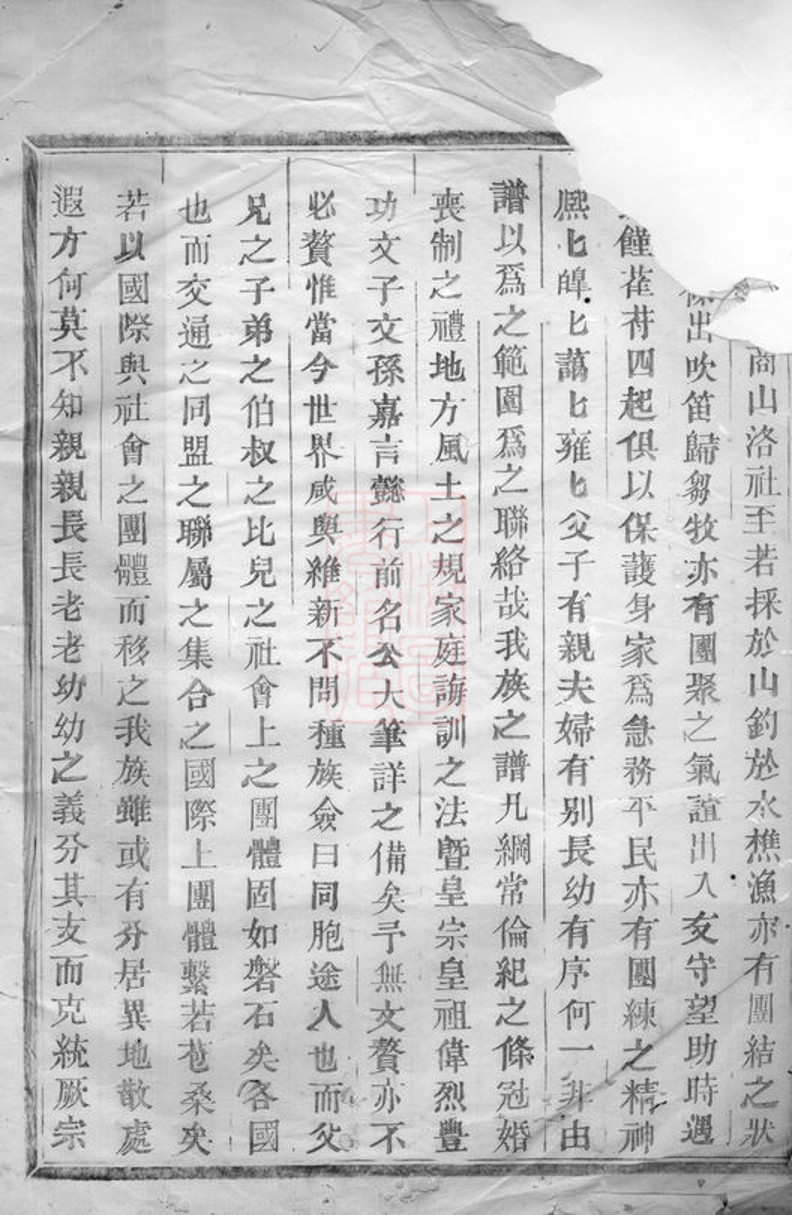 商山洛社至若採於山釣於水樵漁亦有團結之狀
出吹笛歸芻牧亦有團聚之氣誼出入友守望助時遇
饉荏苻四起俱以保護身家爲急務平民亦有團練之精神
熙匕皥匕藹匕雍匕父子有親夫婦有別長幼有序何一非由
譜以爲之範圍爲之聯絡哉我族之譜凡綱常倫紀之條冠婚
喪制之禮地方風土之規家庭誨訓之法曁皇宗皇祖偉烈豐
功文子文孫嘉言懿行前名公大筆詳之備矣予無文贅亦不
必贅惟當今世界咸與維新不問種族僉曰同胞途人也而父
兄之子弟之伯叔之比兒之社會上之團體固如磐石矣各國
也而交通之同盟之聯屬之集合之國際上團體繫若苞桑矣
若以國際與社會之團體而移之我族雖或有分居異地散處
遐方何莫不知親親長長老老幼幼之義分其支而克統厥宗